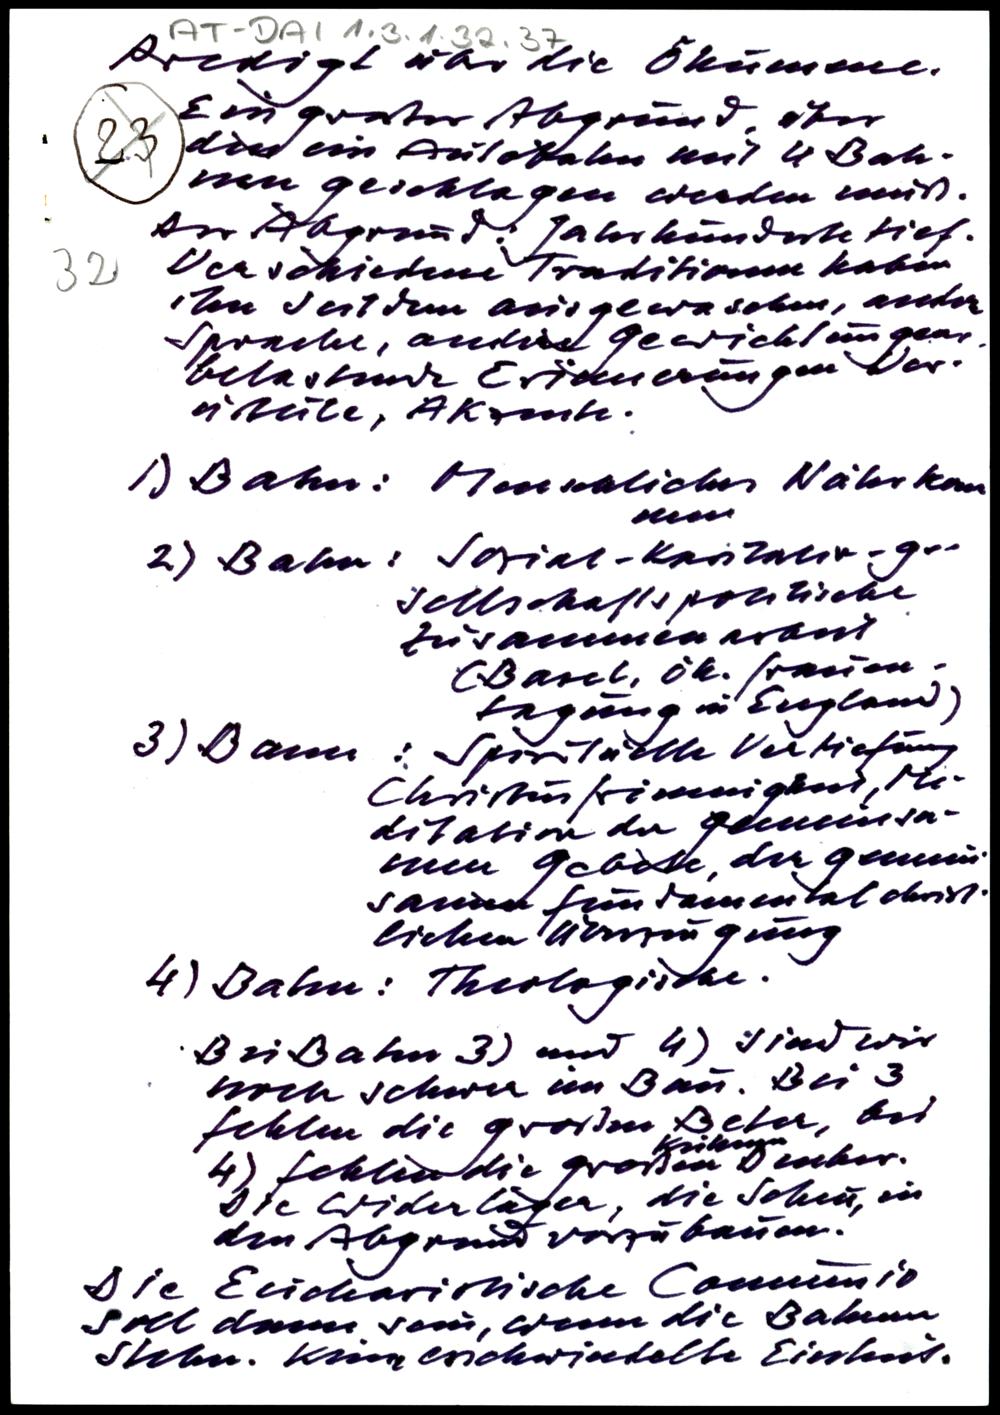 AT-DAI 1.3.1.32.37
Predigt über die Ökumene.
23
Ein großer Abgrund, über
den ein Autobahn mit 4 Bah-
nen geschlagen werden muß.
Der Abgrund: Jahrhunderte tief.
32
Verschiedene Traditionen haben
ihn seitdem ausgewaschen, andere
Sprache, andere Gewichtungen.
belastende Erinnerungen Vor-
urteile, Akzente.
1) Bahn: Menschliches Näherkom
men
2) Bahn: Sozial-karitativ-ge-
sellschaftspolitische
Zusammenarbeit
(Basel, ök. Frauen-
tagung in England)
3) Bahn: Spirituelle Vertiefung
Christusfrömmigkeit, Me-
ditation der gemeinsa-
men Gebete, der gemein
samen fundamental christ-
lichen Überzeugung
4) Bahn: Theologische.
Bei Bahn 3) und 4) sind wir
noch schwer im Bau. Bei 3
fehlen die großen Beter, bei
4) fehlen die großen kühnen Denker.
Die Widerläger, die Scheu, in
den Abgrund vorzubauen.
Die Eucharistische Communio
soll dann sein, wenn die Bahnen
stehn. Keine erschwindelte Einheit.